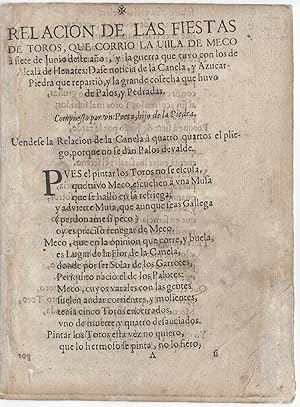 RELACION DE LAS FIESTAS
DE TOROS, QUE CORRIO LA VILLA DE MECO
à siete de Junio deste año, y la guerra que tuvo con los de
Alcalà de Henares: Dase noticia de la Canela, y Azucar-
Piedra que repartiò, y la grande cosecha que huvo
de Palos, y Pedradas.
Compuesto por vn Poeta, hijo de la Piedra.
Vendese la Relacion de la Canela à quatro quartos el plie-
go, porque no se dàn Palos de valde.
PVES el pintar los Toros no se escusa,
que tuvo Meco, escuchen à vna Musa
que se hallò en la refriega;
y advierte Musa, que aunque seas Gallega
(perdoname si peco)
oy es preciso renegar de Meco.
Meco, que en la opinion que corre, y buela,
es Lugar de la Flor de la Canela,
donde por ser Solar de los Garrotes,
Periquito naciò el de los Palotes:
Meco, cuyos varales con las gentes
suelen andar corrientes, y molientes,
tenia cinco Toros encerrados,
vno de muerte, y quatro desauciados.
Pintar los Toros esta vez no quiero,
que lo hermoso se pinta, no lo fiero,
A
si